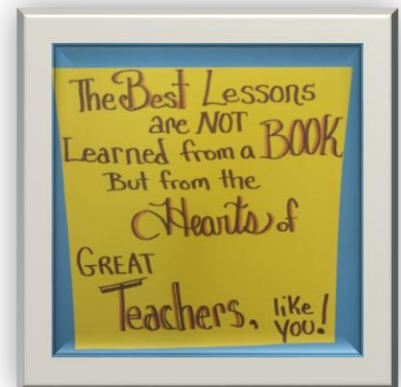 The Best Lessons
are NOT
Learned from a BOOK
But from the
Hearts of
GREAT
Teachers, like
YOU!